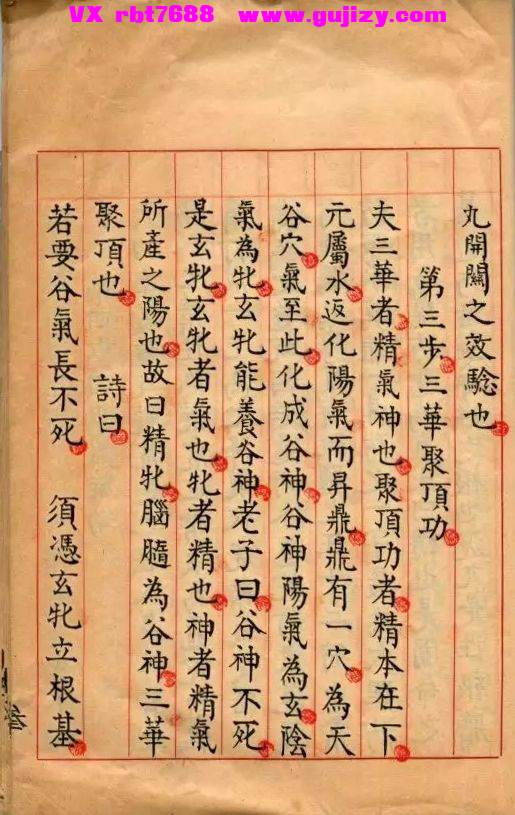 VX rbt7688 www.gujizy.com
丸開關之效驗也
第三步三華聚頂功
夫三華者精氣神也聚頂功者精本在下
元屬水返化陽氣而昇鼎鼎有一穴為天
谷穴氣至此化成谷神谷神陽氣為玄陰
氣為牝玄牝能養谷神老子曰谷神不死
是玄牝玄牝者氣也牝者精也神者精氣
所產之陽也故曰精牝腦髓為谷神三華
聚頂也 詩曰
若要谷氣長不死 須憑玄牝立根基